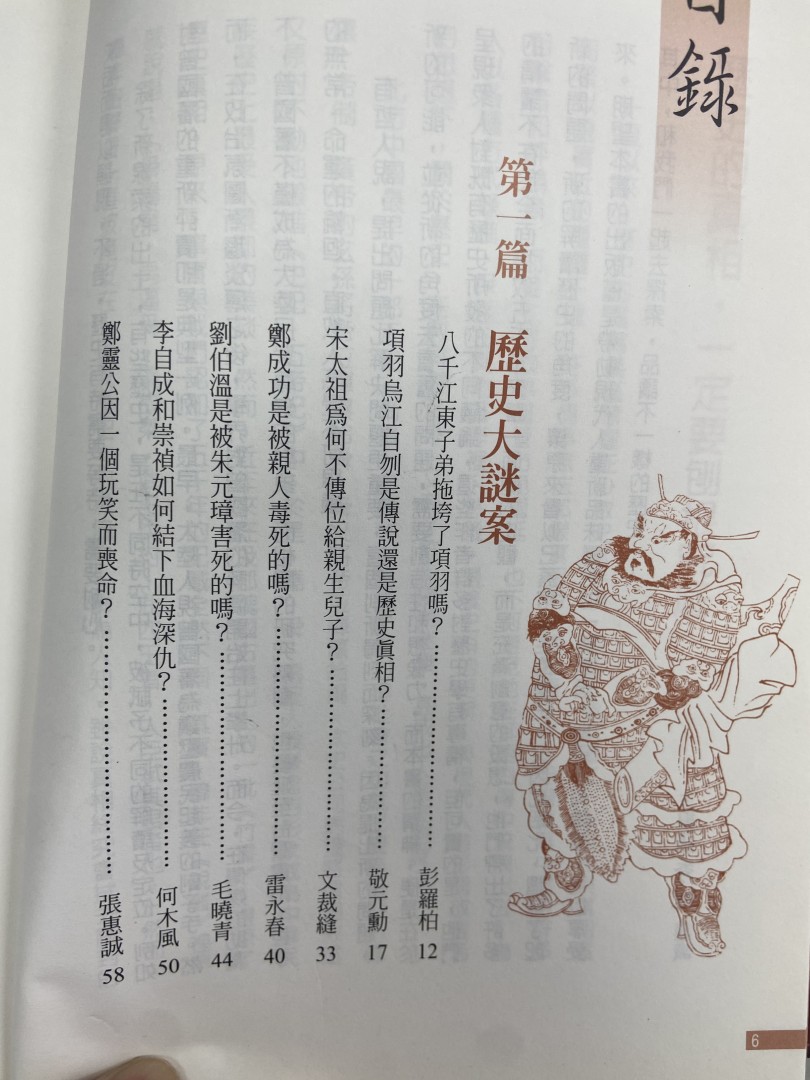 目錄
第一篇 歷史大謎案
八千江東子弟拖垮了項羽嗎？⋯⋯⋯⋯⋯⋯⋯⋯⋯⋯彭羅柏 12
項羽烏江自刎是傳說還是歷史眞相？⋯⋯⋯⋯⋯⋯敬元勳 17
宋太祖爲何不傳位給親生兒子？⋯⋯⋯⋯⋯⋯⋯⋯文裁縫 33
鄭成功是被親人毒死的嗎？⋯⋯⋯⋯⋯⋯⋯⋯⋯⋯雷永春 40
劉伯溫是被朱元璋害死的嗎？⋯⋯⋯⋯⋯⋯⋯⋯⋯毛曉青 44
李自成和崇禎如何結下血海深仇？⋯⋯⋯⋯⋯⋯⋯何木風 50
鄭靈公因一個玩笑而喪命？⋯⋯⋯⋯⋯⋯⋯⋯⋯⋯張惠誠 58
6